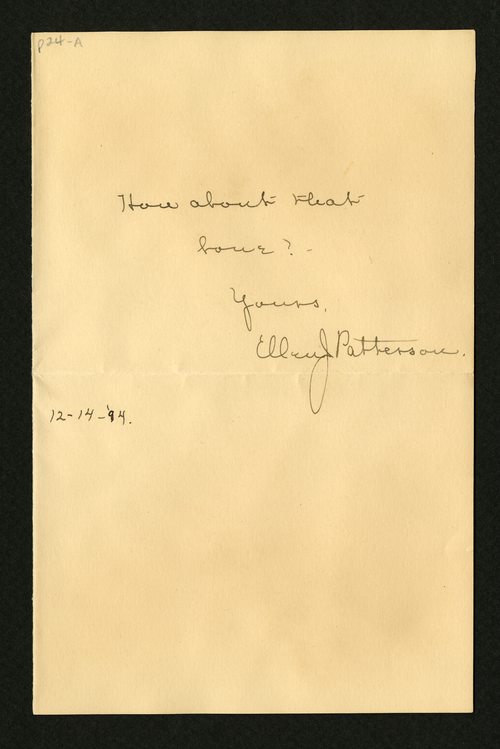 P24-A
How about that
bone? -
Yours,
Ellen J Patterson.
12-14-'94.